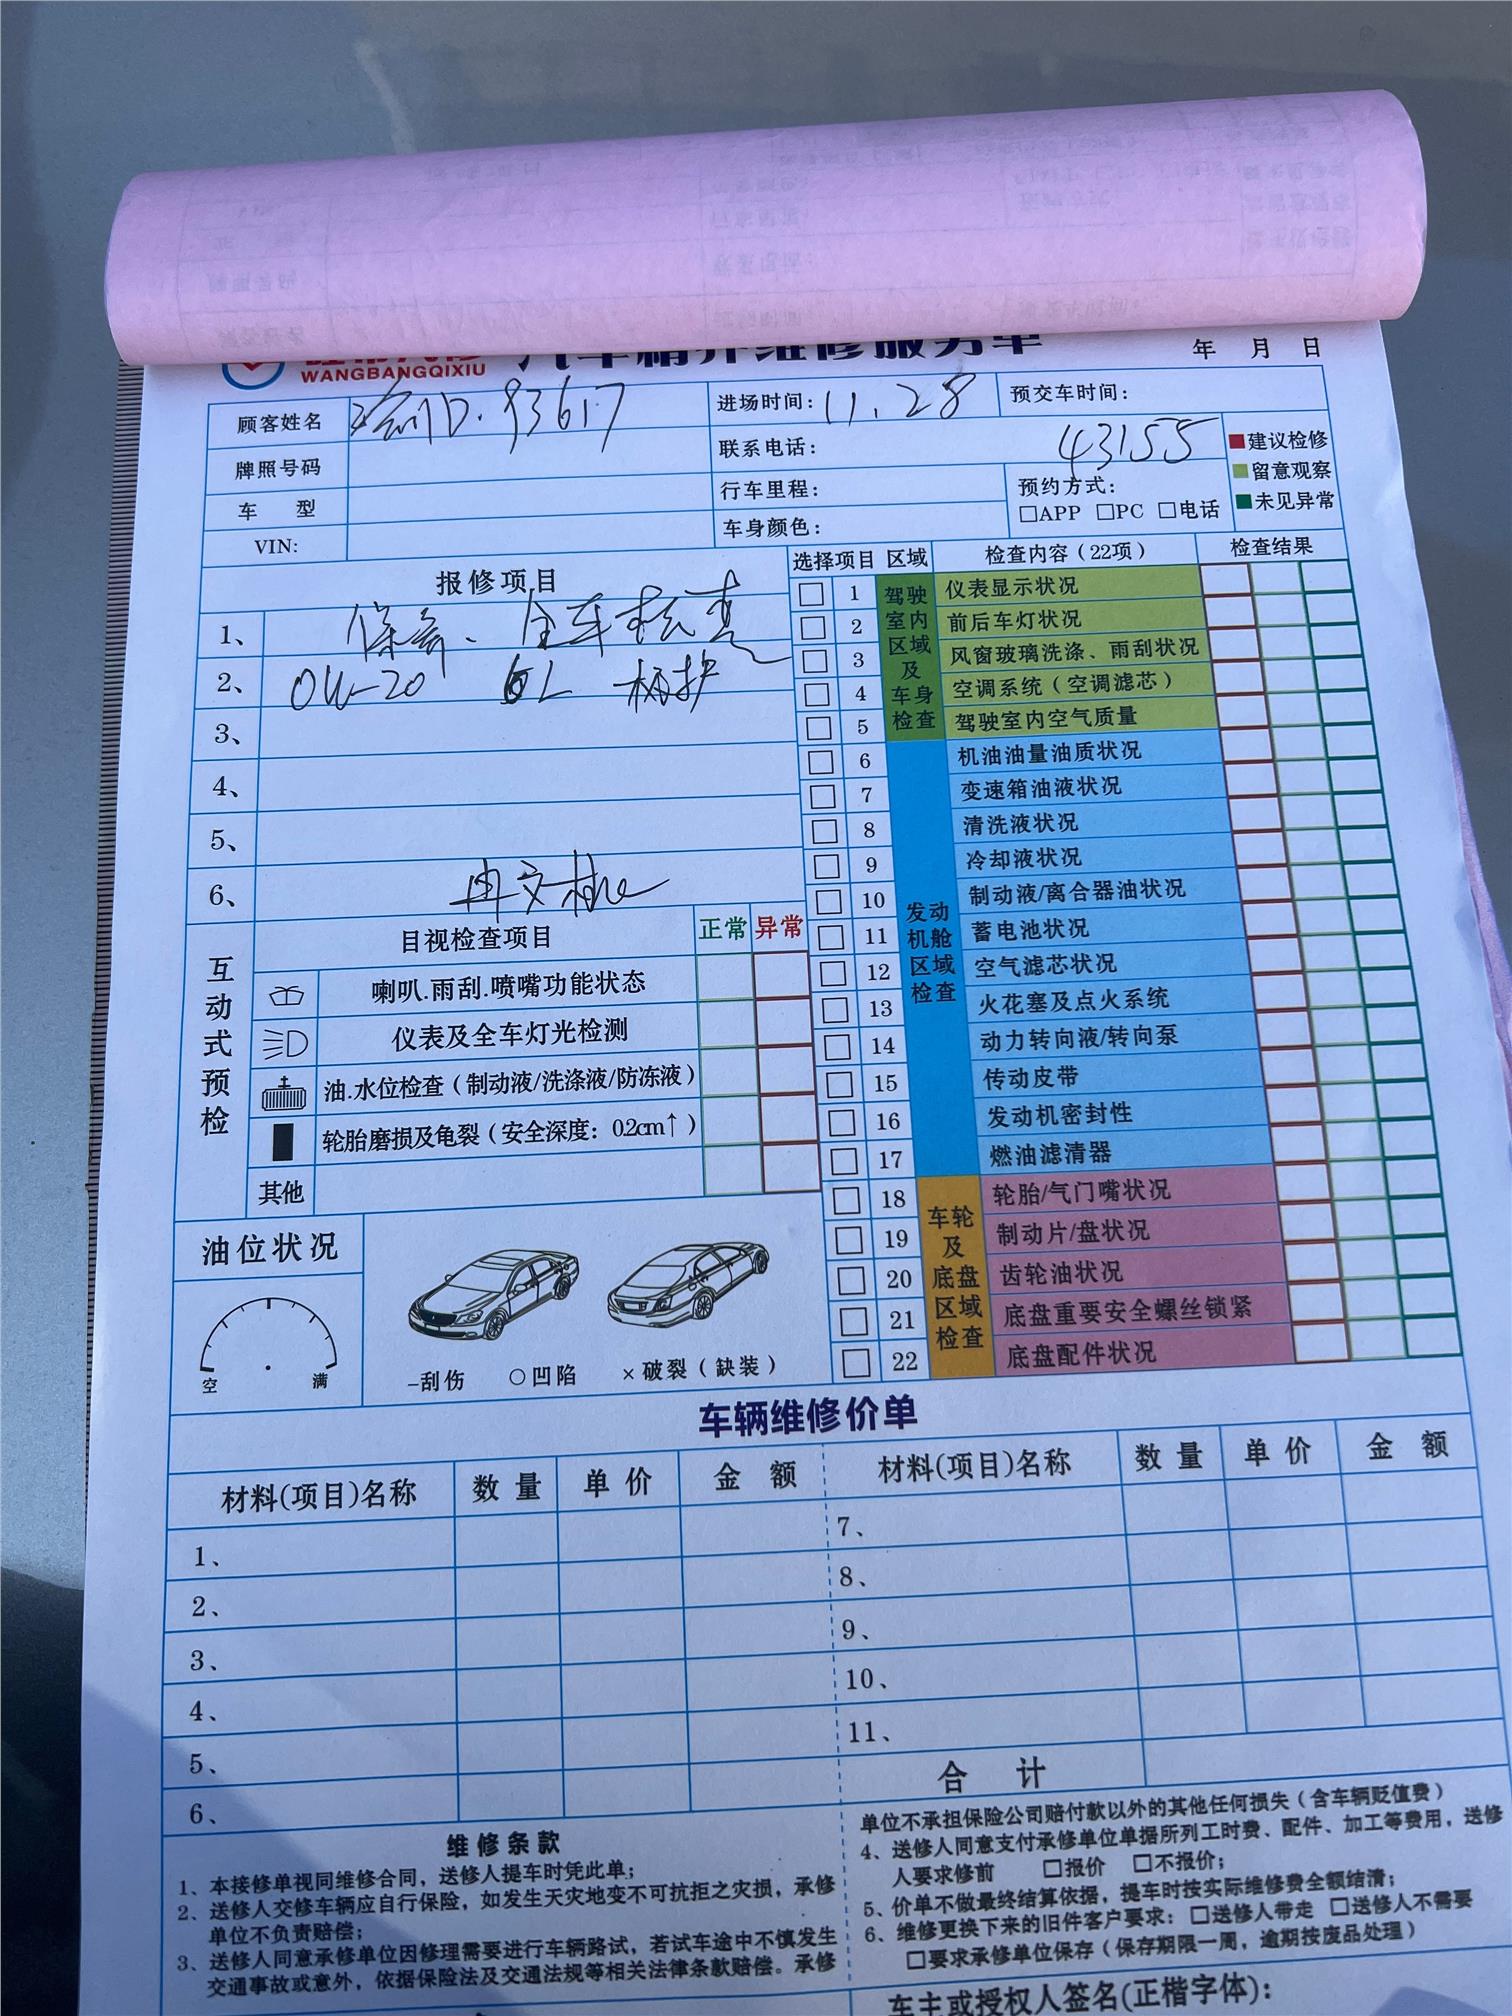 WANGBANGQIXIU
汽车精养维修服务单
年 月 日
顾客姓名 渝D.93617 进场时间：11.28 预交车时间：
牌照号码 联系电话： 43155
车 型 行车里程： 预约方式：
□APP □PC □电话
VIN: 车身颜色：
建议检修
留意观察
未见异常
报修项目
1、保养、全车检查
2、0W-20 6L 标护
3、
4、
5、
6、
互动式预检
目视检查项目 正常 异常
喇叭.雨刮.喷嘴功能状态
仪表及全车灯光检测
油.水位检查（制动液/洗涤液/防冻液）
轮胎磨损及龟裂（安全深度：0.2cm↑）
其他
油位状况
空 满
–刮伤 ○凹陷 ×破裂（缺装）
选择项目 区域 检查内容（22项） 检查结果
驾驶室内区域及车身检查
1 仪表显示状况
2 前后车灯状况
3 风窗玻璃洗涤、雨刮状况
4 空调系统（空调滤芯）
5 驾驶室内空气质量
发动机舱区域检查
6 机油油量油质状况
7 变速箱油液状况
8 清洗液状况
9 冷却液状况
10 制动液/离合器油状况
11 蓄电池状况
12 空气滤芯状况
13 火花塞及点火系统
14 动力转向液/转向泵
15 传动皮带
16 发动机密封性
17 燃油滤清器
车轮及底盘区域检查
18 轮胎/气门嘴状况
19 制动片/盘状况
20 齿轮油状况
21 底盘重要安全螺丝锁紧
22 底盘配件状况
车辆维修价单
材料(项目)名称 数量 单价 金额 材料(项目)名称 数量 单价 金额
1、 7、
2、 8、
3、 9、
4、 10、
5、 11、
6、 合 计
维修条款
1、本接修单视同维修合同，送修人提车时凭此单；
2、送修人交修车辆应自行保险，如发生天灾地变不可抗拒之灾损，承修
单位不负责赔偿；
3、送修人同意承修单位因修理需要进行车辆路试，若试车途中不慎发生
交通事故或意外，依据保险法及交通法规等相关法律条款赔偿。承修
单位不承担保险公司赔付款以外的其他任何损失（含车辆贬值费）
4、送修人同意支付承修单位单据所列工时费、配件、加工等费用，送修
人要求修前 □报价 □不报价；
5、价单不做最终结算依据，提车时按实际维修费全额结清；
6、维修更换下来的旧件客户要求：□送修人带走 □送修人不需要
□要求承修单位保存（保存期限一周，逾期按废品处理）
车主或授权人签名(正楷字体)：